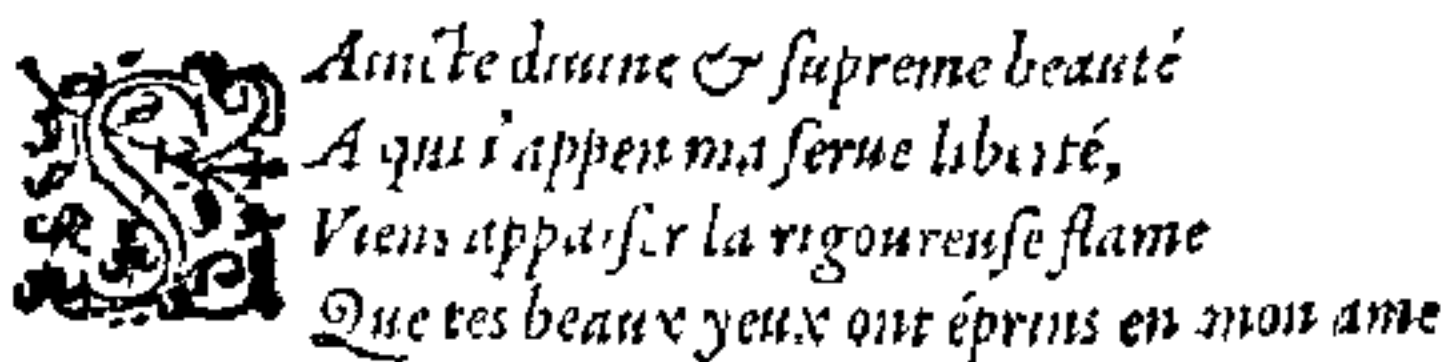 SAincte diuine & ſupreme beauté
A qui i'appen ma ſerue liberté,
Viens appaiſer la rigoureuſe flame
Que tes beaux yeux ont éprins en mon ame